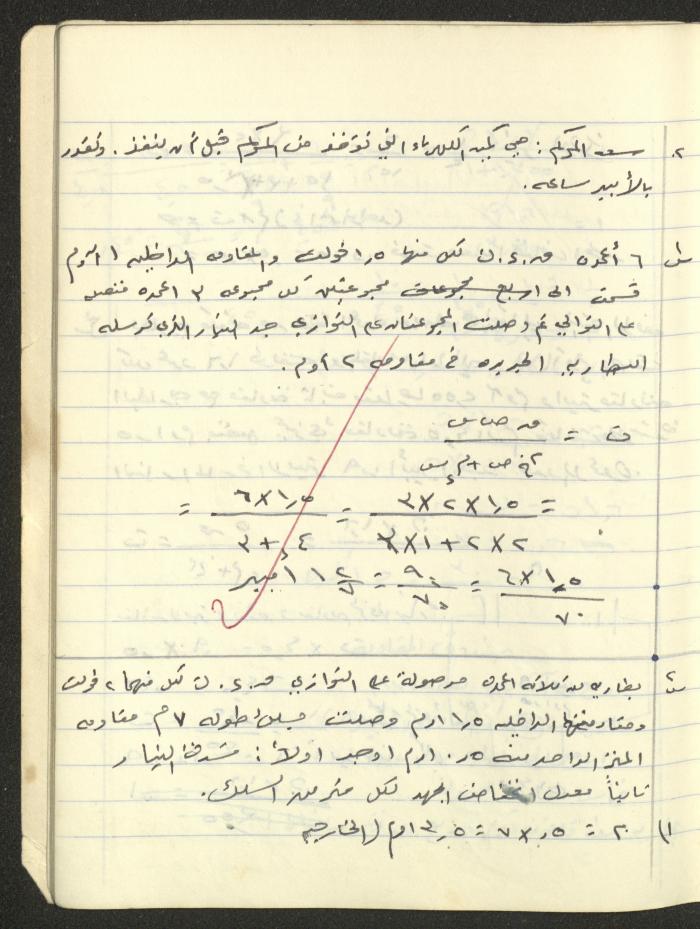 ٢. سعة المركم : هي كمية الكهرباء التي تؤخذ من المركم قبل أن ينفذ . وتقدر
بالأمبير ساعه .
س ٦ أعمده ق.د.ك لكل منها ١٫٥ فولت والمقاومه الداخليه ١ اوم
قسمت الى اربع مجموعات مجموعتين كل مجموعه ٣ اعمده متصله
على التوالي ثم وصلت المجموعتان على التوازي جد التيار الذي ترسله
البطاريه الجديده في مقاومه ٢ اوم .
ت = ق ص س
م خ ص + م د س
= ١٫٥ × ٢ × ٣ = ١٫٥ × ٦ =
٢ × ٢ + ١ × ٣ ٤ + ٣
١٫٥ × ٦ = ٩٠ = ١ ٢/٧ امبير
٧٠ ٧٠
س بطاريه من ثلاثه اعمده موصولة على التوازي ق.د.ك لكل منهما ٢ فولت
ومقاومتها الداخليه ١٫٥ اوم وصلت بسلك طوله ٧ م مقاومه
المتر الواحد منه ٥ر٠ اوم اوجد اولاً : شدة التيار
ثانياً معدل انخفاض الجهد لكل متر من السلك .
١) م = ٥ر × ٧ = ٣٫٥ اوم (الخارجيه